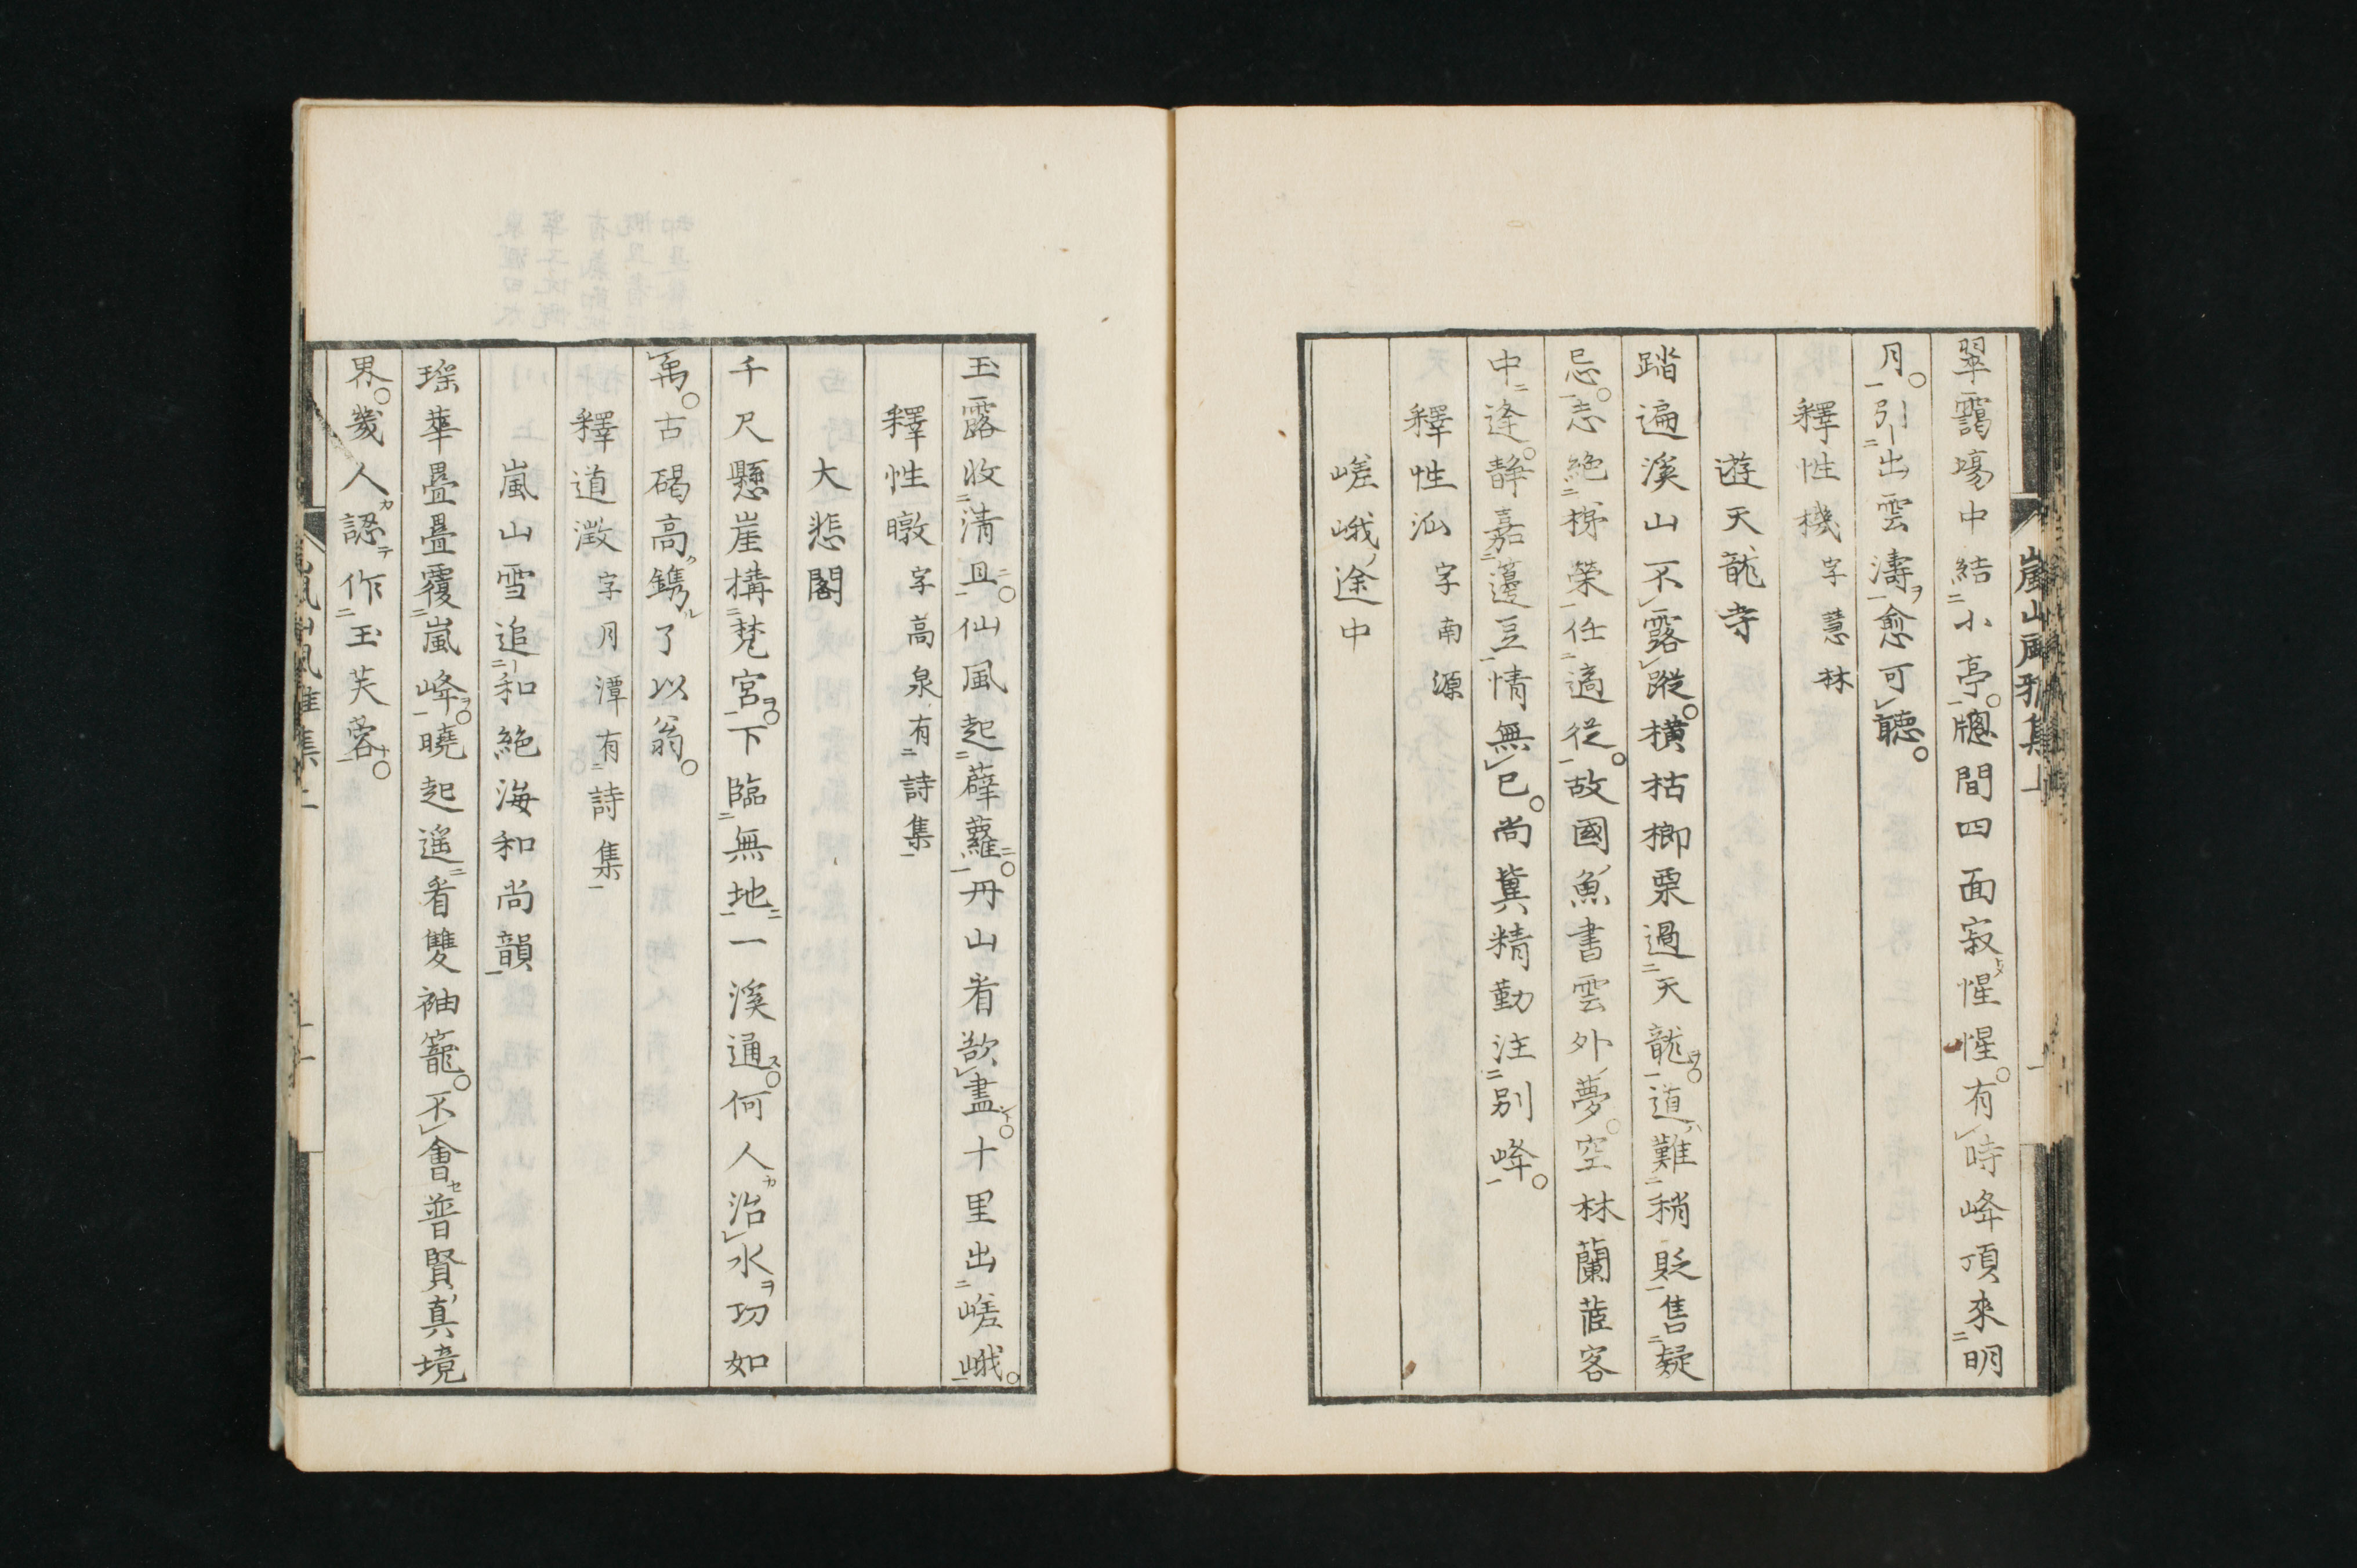 翠靄塲中結小亭。牕間四面寂惺惺。有時峰頂來明
月。引出雲濤愈可聽。
釋性機字慧林
遊天龍寺
踏遍溪山不露蹤。橫枯榔栗過天龍。道難稍貶售疑
忌。志絕梯榮任適從。故國魚書雲外夢。空林蘭茝客
中逢。靜嘉籩豆情無已。尚冀精勤注別峰。
釋性泒字南源
嵯峨途中
玉露收清且。仙風起薜蘿。丹山看欲盡。十里出嵯峨。
釋性暾字高泉有詩集
大悲閣
千尺懸崖構梵宮。下臨無地一溪通。何人治水功如
禹。古碣高鐫了以翁。
釋道澂字月潭有詩集
嵐山雪追和絕海和尚韻
瑤華疊疊覆嵐峰。曉起遥看雙袖籠。不會普賢真境
界。幾人認作玉芙蓉。
嵐山風雅集上